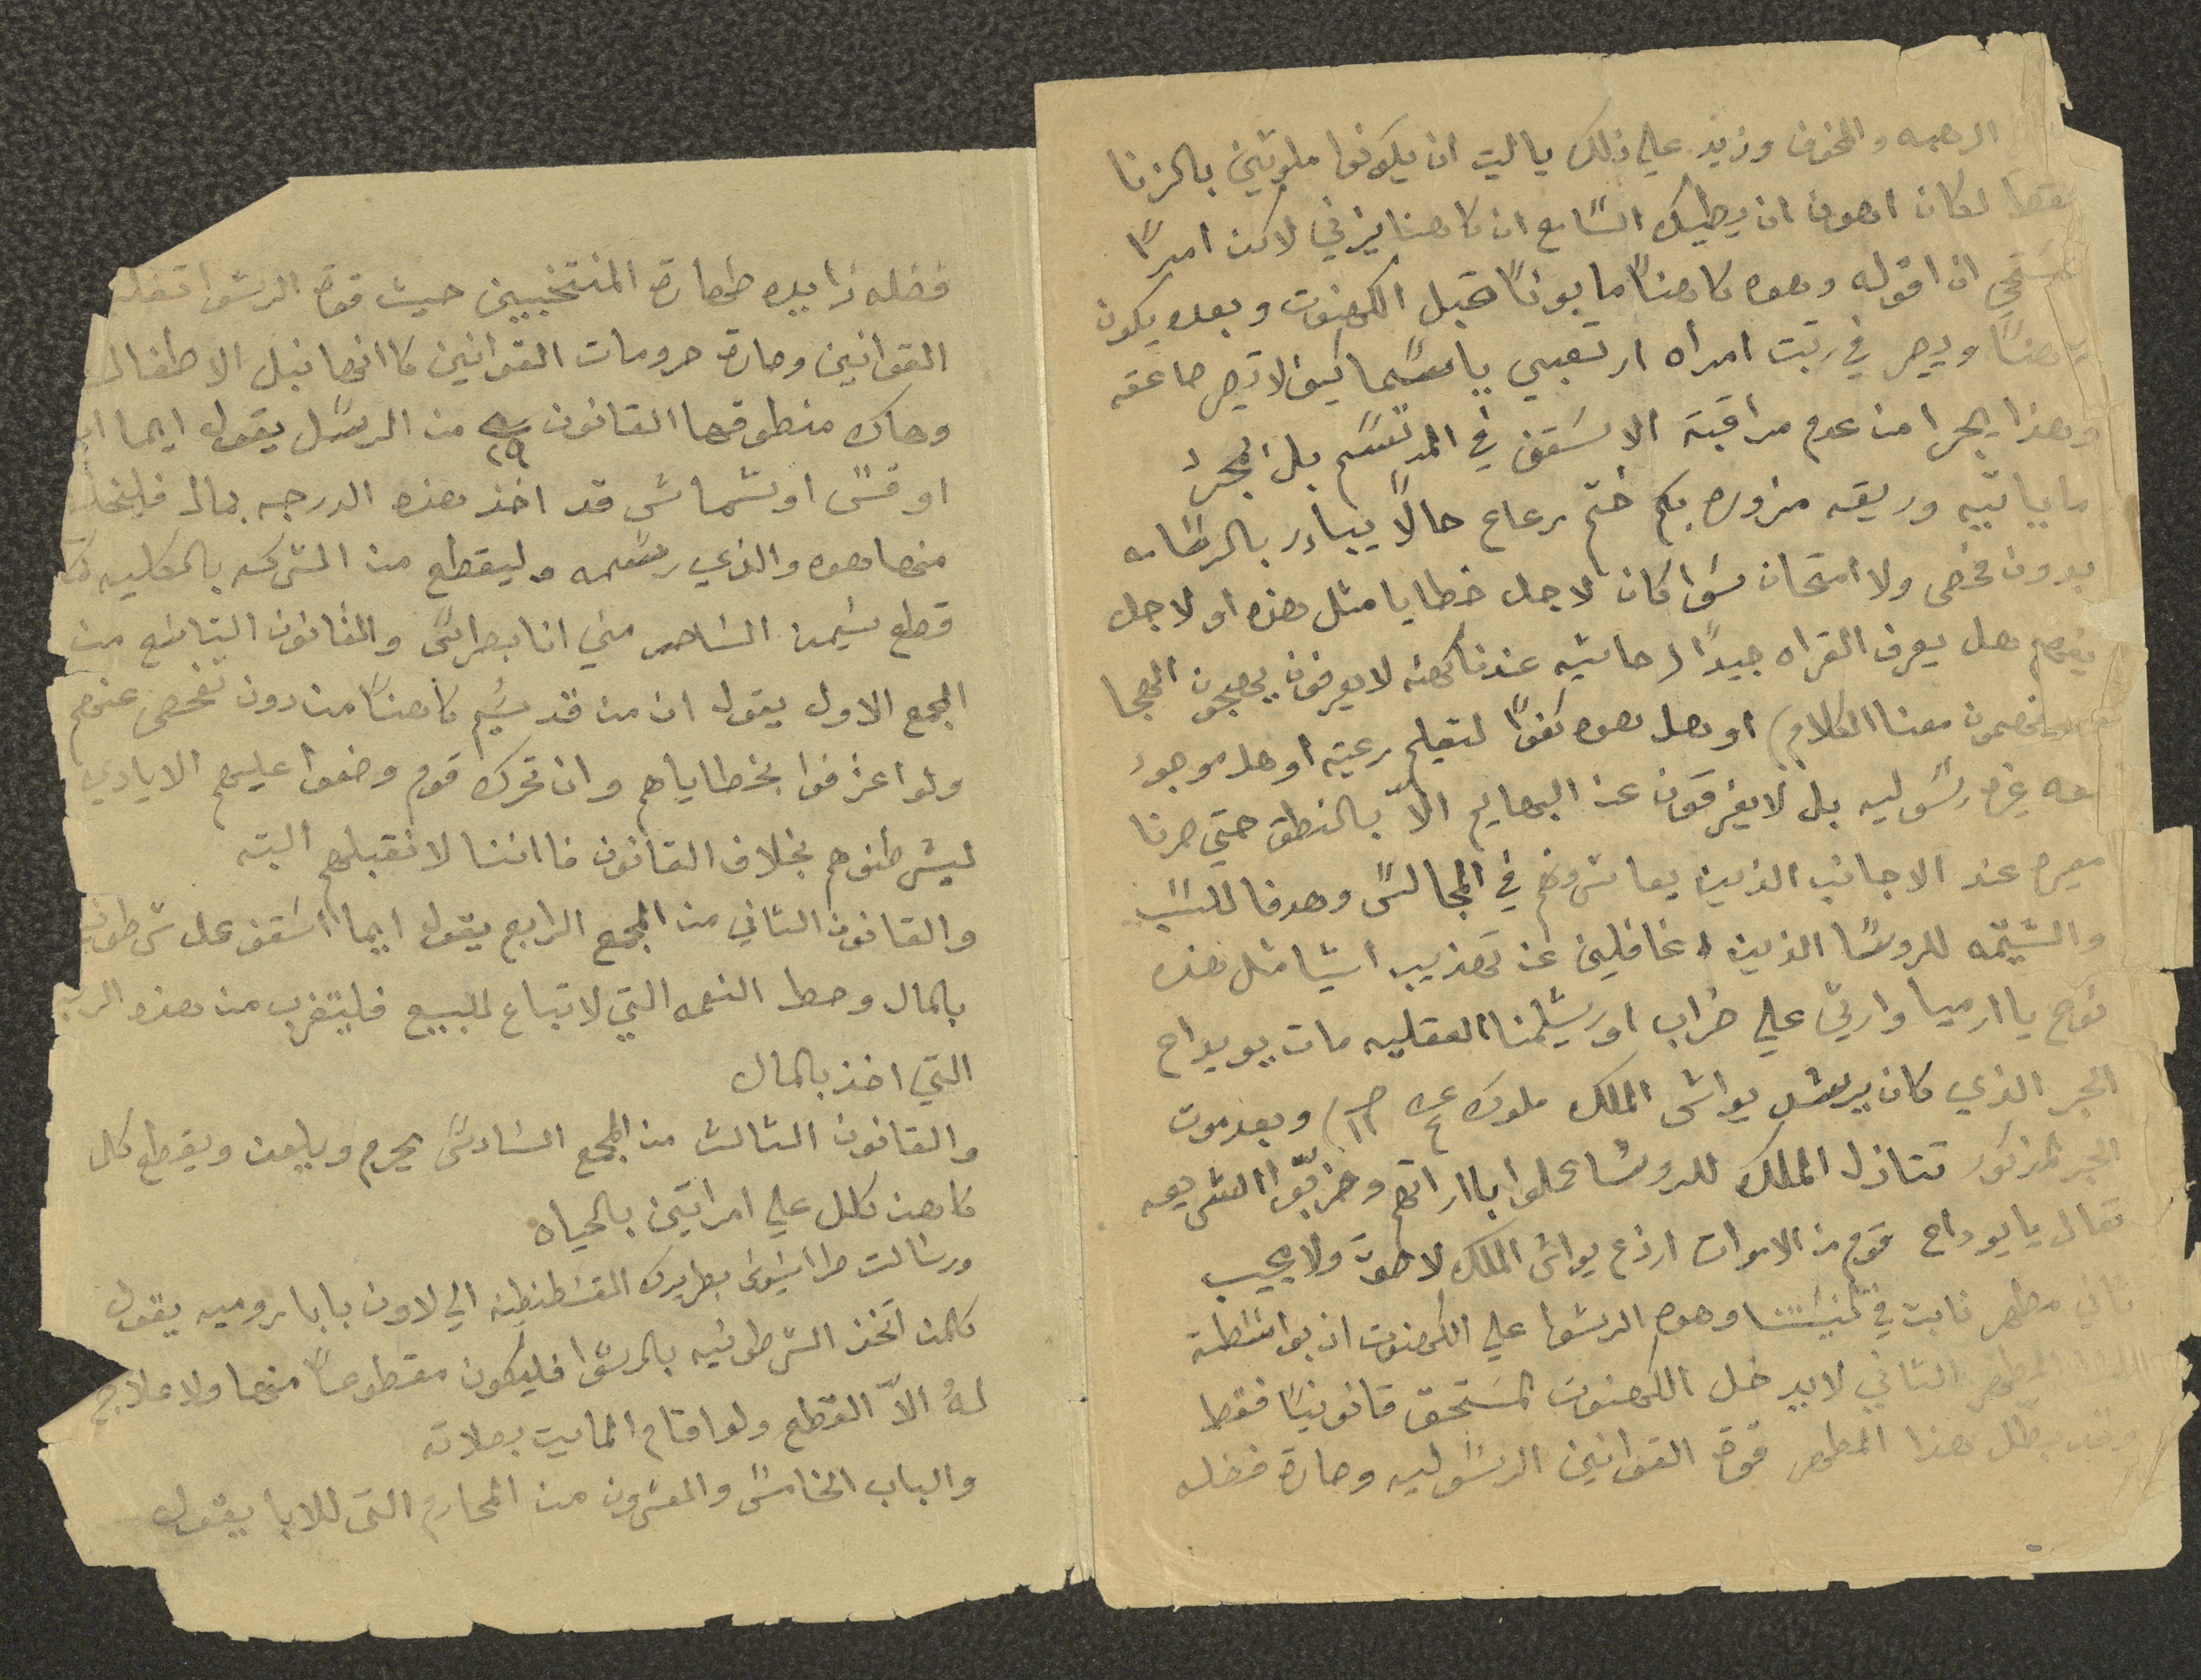 الرهبه والخوف وزيد علي ذلك ياليت ان يكونوا ملوثين بالزنا
فقط لكان اهون ان يطيك السامع ان كاهنا يزني لاكن امرًا
نستحي ان اقوله وهوه كاهنًا مابونًا قبل الكهنوت وبعده يكون
كاهنًا ويصر في رتبت امراه ارتعبي ياسما كيف لا تصر صاعقه
وهذا يجرا من عدم مراقبة الاسقف في المرتسم بل بمجرد
ما ياتيه وريقه مزوره بكم ختم رعاع حالًا يبادر بالرطامه
بدون فحص ولا امتحان سوا كان لاجل خطايا مثل هذه او لاجل
يفهم هل يعرف القراه جيدًا (حاشيه عندنا كهنه لا يعرفون يهجون الهجا
يفهمون معنا الكلام) او هل هوه كفوًا لتعليم رعيته او هل موجود
معه غيره رسوليه بل لا يفرقون عن البهايم الاّ بالنطق حتي صرنا
معيره عند الاجانب الذين يعاشروهم في المجالس وهدفا للسب
والشتيمه للروسا الذين غافلين عن تهذيب اشيا مثل هذه
نوح يا ارميا وارثي علي خراب اورشليمنا العقليه مات يويداع
الحبر الذي كان يرشد يواش الملك ملوك ٤ ص ١٢) وبعد موت
الحبر المذكور تنازل الملك للروسا عملوا باراتهم وخربّوا الشريعه
تعال يا يوداع قوم من الاموات اردع يواش الملك لا صوت ولا مجيب
ثاني مطهر ثابت في كنيستنا وهوه الرشوا علي الكهنوت اذ بواسطة
هذا المطهر الثاني لا يدخل الكهنوت المستحق قانونيًا فقط
وقد بطّل هذا المطهر قوة القوانين الرسوليه وصارة فضله
فضله زايده طهارة المنتخبين حيث قوة الرشوا تغلب
القوانين وصارة حرومات القوانين كاانها نبل الاطفال
وهاك منطوقها القانون ٢٩ من الرسل يقول ايما
او قسً او شماس قد اخذ هذه الدرجه بمال فليخلع
منها هوه والذي رسمه وليقطع من الشركه بالكليه كما
قطع سيمن الساحر مني انا بطرس والقانون التاسع من
المجمع الاول يقول ان من قد سُيم كاهنًا من دون تفحص عنهم
ولو اعترفوا بخطاياهم وان تحرك قوم وضعوا عليهم الايادي
ليشرطنوهم بخلاف القانون فااننا لا نقبلهم البته
والقانون الثاني من المجمع الرابع يقول ايما اسقف عمل شرطونيه
بالمال وحط النعمه التي لا تباع للبيع فليتغرب من هذه الرتبه
التي اخذ بالمال
والقانون الثالث من المجمع السادس يحرم ويلعن ويقطع كل
كاهن كلل علي امراتين بالحياه
ورسالت طراسيوس بطريرك القسطنطينه الي لاون بابا روميه يقول
كلمن اتخذ الشرطونيه بالرشوا فليكون مقطوعًا منها ولا علاج
لهُ الاّ القطع ولو اقام المايت بصلاته
والباب الخامس والعشرون من المحارم التي للابا يقول